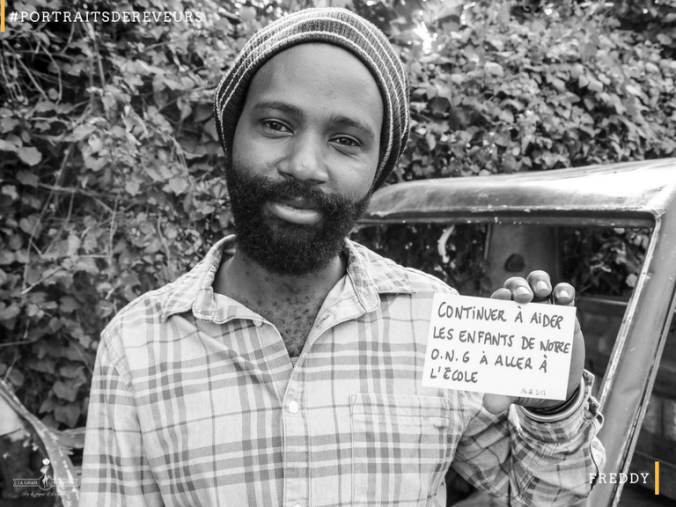 #PORTRAITSDEREVEURS
CONTINUER À AIDER
LES ENFANTS DE NOTRE
O.N.G À ALLER À
L'ÉCOLE
FREDDY